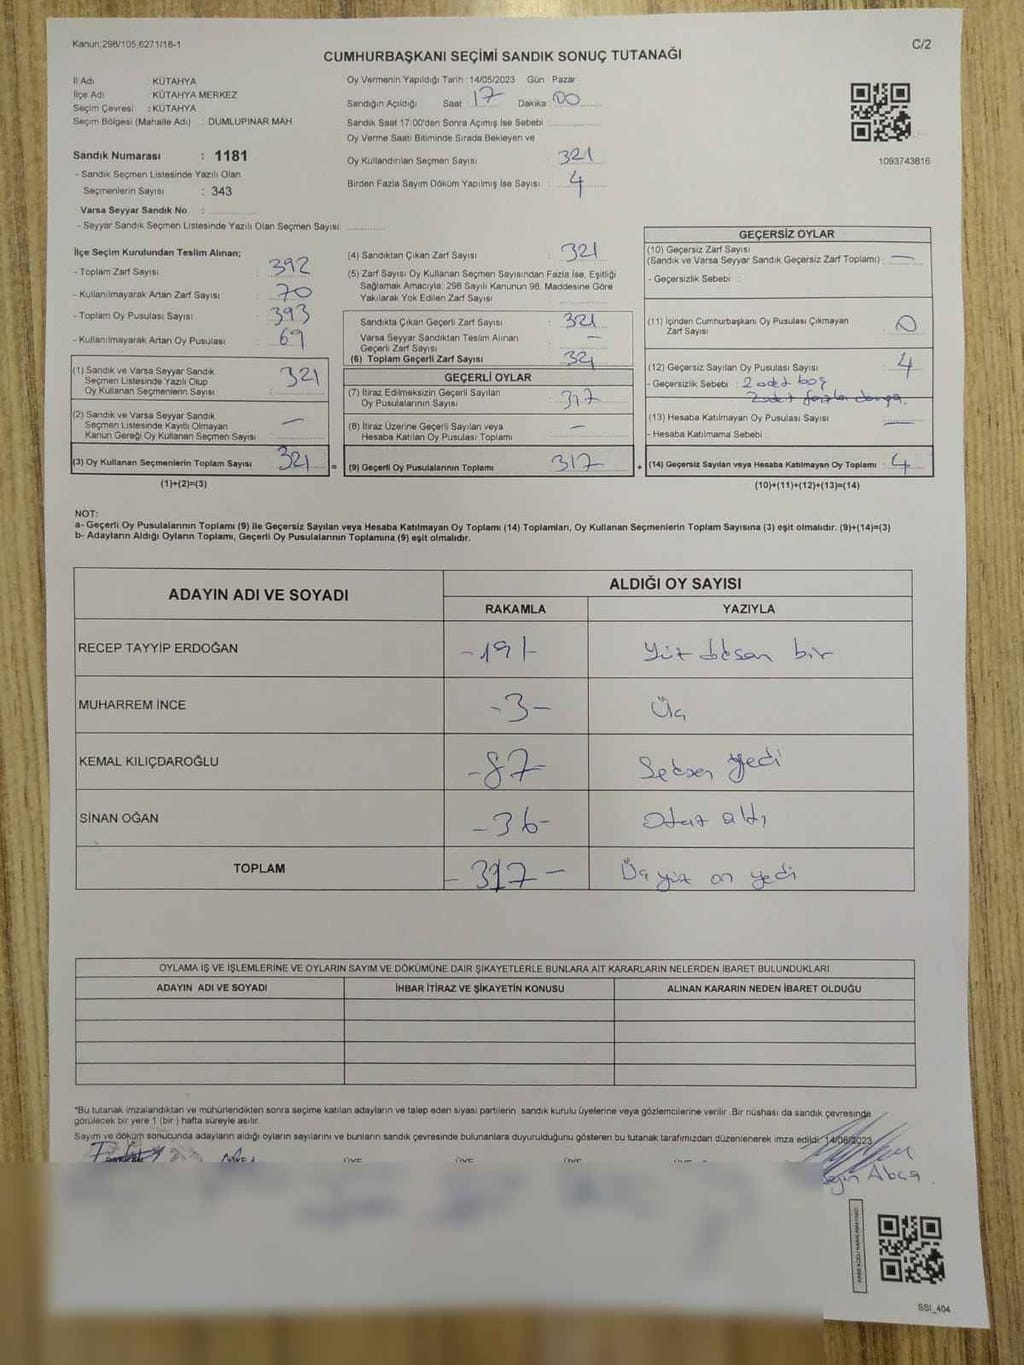 Kanun:298/105;6271/18-1
C/2
CUMHURBAŞKANI SEÇİMİ SANDIK SONUÇ TUTANAĞI
İl Adı : KÜTAHYA
İlçe Adı : KÜTAHYA MERKEZ
Seçim Çevresi : KÜTAHYA
Seçim Bölgesi (Mahalle Adı) : DUMLUPINAR MAH
Sandık Numarası : 1181
- Sandık Seçmen Listesinde Yazılı Olan
Seçmenlerin Sayısı : 343
Varsa Seyyar Sandık No :
- Seyyar Sandık Seçmen Listesinde Yazılı Olan Seçmen Sayısı
Oy Vermenin Yapıldığı Tarih :14/05/2023 Gün : Pazar
Sandığın Açıldığı Saat 17 Dakika 00
Sandık Saat 17:00'den Sonra Açımış İse Sebebi :
Oy Verme Saati Bitiminde Sırada Bekleyen ve
Oy Kullandırılan Seçmen Sayısı : 321
Birden Fazla Sayım Döküm Yapılmış İse Sayısı : 4
1093743816
İlçe Seçim Kurulundan Teslim Alınan;
- Toplam Zarf Sayısı : 392
- Kullanılmayarak Artan Zarf Sayısı : 70
- Toplam Oy Pusulası Sayısı : 393
- Kullanılmayarak Artan Oy Pusulası : 69
(1) Sandık ve Varsa Seyyar Sandık
Seçmen Listesinde Yazılı Olup
Oy Kullanan Seçmenlerin Sayısı : 321
(2) Sandık ve Varsa Seyyar Sandık
Seçmen Listesinde Kayıtlı Olmayan
Kanun Gereği Oy Kullanan Seçmen Sayısı : —
(3) Oy Kullanan Seçmenlerin Toplam Sayısı : 321
(1)+(2)=(3)
(4) Sandıktan Çıkan Zarf Sayısı : 321
(5) Zarf Sayısı Oy Kullanan Seçmen Sayısından Fazla İse, Eşitliği
Sağlamak Amacıyla; 298 Sayılı Kanunun 98. Maddesine Göre
Yakılarak Yok Edilen Zarf Sayısı :
Sandıkta Çıkan Geçerli Zarf Sayısı : 321
Varsa Seyyar Sandıktan Teslim Alınan
Geçerli Zarf Sayısı : —
(6) Toplam Geçerli Zarf Sayısı : 321
GEÇERLİ OYLAR
(7) İtiraz Edilmeksizin Geçerli Sayılan
Oy Pusulalarının Sayısı : 317
(8) İtiraz Üzerine Geçerli Sayılan veya
Hesaba Katılan Oy Pusulası Toplamı : —
= (9) Geçerli Oy Pusulalarının Toplamı : 317
GEÇERSİZ OYLAR
(10) Geçersiz Zarf Sayısı
(Sandık ve Varsa Seyyar Sandık Geçersiz Zarf Toplamı) : —
- Geçersizlik Sebebi :
(11) İçinden Cumhurbaşkanı Oy Pusulası Çıkmayan
Zarf Sayısı : 0
(12) Geçersiz Sayılan Oy Pusulası Sayısı : 4
- Geçersizlik Sebebi : 2 adet boş
2 adet fazla damga.
(13) Hesaba Katılmayan Oy Pusulası Sayısı : —
- Hesaba Katılmama Sebebi :
+ (14) Geçersiz Sayılan veya Hesaba Katılmayan Oy Toplamı : 4
(10)+(11)+(12)+(13)=(14)
NOT:
a- Geçerli Oy Pusulalarının Toplamı (9) ile Geçersiz Sayılan veya Hesaba Katılmayan Oy Toplamı (14) Toplamları, Oy Kullanan Seçmenlerin Toplam Sayısına (3) eşit olmalıdır. (9)+(14)=(3)
b- Adayların Aldığı Oyların Toplamı, Geçerli Oy Pusulalarının Toplamına (9) eşit olmalıdır.
ADAYIN ADI VE SOYADI
ALDIĞI OY SAYISI
RAKAMLA YAZIYLA
RECEP TAYYİP ERDOĞAN -191- Yüz doksan bir
MUHARREM İNCE -3- Üç
KEMAL KILIÇDAROĞLU -87- Seksen yedi
SİNAN OĞAN -36- Otuz altı
TOPLAM -317- Üç yüz on yedi
OYLAMA İŞ VE İŞLEMLERİNE VE OYLARIN SAYIM VE DÖKÜMÜNE DAİR ŞİKAYETLERLE BUNLARA AİT KARARLARIN NELERDEN İBARET BULUNDUKLARI
ADAYIN ADI VE SOYADI İHBAR İTİRAZ VE ŞİKAYETİN KONUSU ALINAN KARARIN NEDEN İBARET OLDUĞU
*Bu tutanak imzalandıktan ve mühürlendikten sonra seçime katılan adayların ve talep eden siyasi partilerin sandık kurulu üyelerine veya gözlemcilerine verilir. Bir nüshası da sandık çevresinde
görülecek bir yere 1 (bir) hafta süreyle asılır.
Sayım ve döküm sonucunda adayların aldığı oyların sayılarını ve bunların sandık çevresinde bulunanlara duyurulduğunu gösteren bu tutanak tarafımızdan düzenlenerek imza edildi. 14/05/2023
ÜYE ÜYE ÜYE
SSI_404